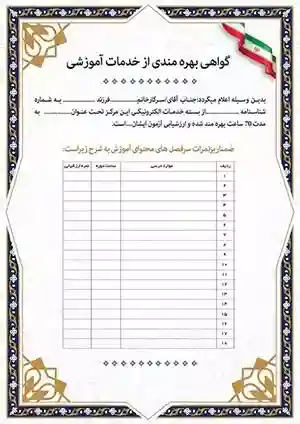 گواهی بهره مندی از خدمات آموزشی
بدین وسیله اعلام میگردد: جناب آقای/سرکارخانم..............فرزند .............. به شماره
شناسنامه ..............از بسته خدمات الکترونیکی این مرکز تحت عنوان.............. به
مدت 70 ساعت بهره مند شده و ارزشیابی آزمون ایشان....است.
ضمنا ریزنمرات سرفصل های محتوای آموزش به شرح زیراست:
ردیف موارد درسی ساعت دوره نمره ارزشیابی
۱
۲
۳
۴
۵
۶
۷
۸
۹
۱۰
۱۱
۱۲
۱۳
۱۴
۱۵
۱۶
۱۷
۱۸